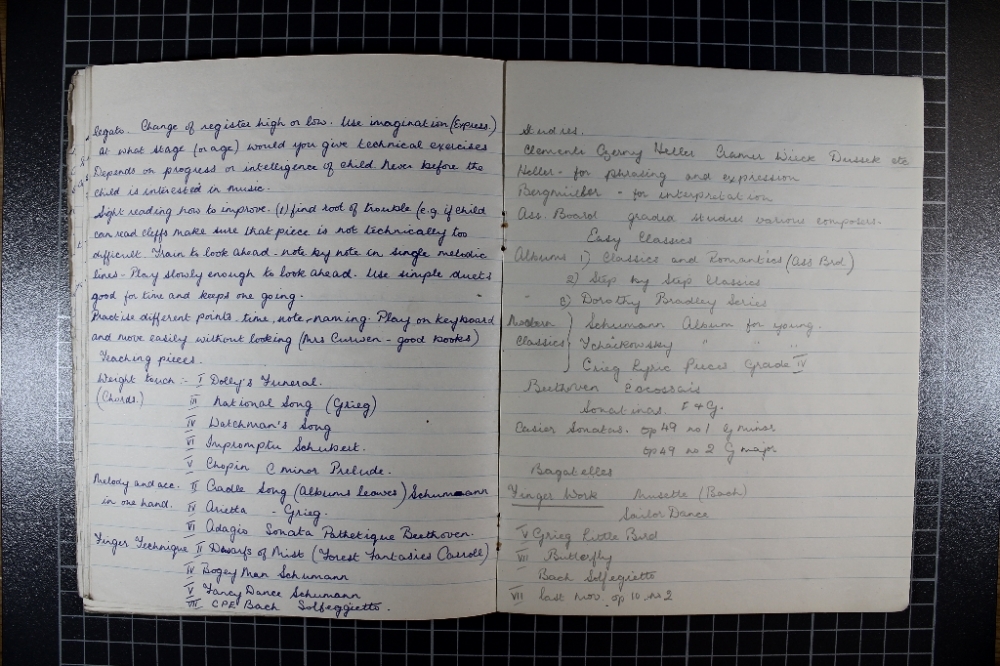 legato. Change of register high or low. Use imagination (Express.)
At what stage (or age) would you give technical exercises
Depends on progress or intelligence of child. Never before the
child is interested in music.
Sight reading how to improve. (1) find root of trouble (e.g. if child
can read cleffs make sure that piece is not technically too
difficult. Train to look ahead - note by note in single melodic
lines - Play slowly enough to look ahead. Use simple duets
good for time and keeps one going.
Practise different points, time, note, naming. Play on keyboard
and move easily without looking (Mrs Curwen - good books)
Teaching pieces.
Weight touch :- I Dolly's Funeral.
(Chords.) III National Song (Grieg)
IV Watchman's Song
VI Impromptu Schubert.
V Chopin C minor Prelude.
Melody and acc. II Cradle Song (Albums leaves) Schumann
in one hand. IV Arietta - Grieg.
VI Adagio Sonata Pathetique Beethoven.
Finger Technique II Dwarfs of Mist (Forest Fantasies Carroll)
IV Bogey Man Schumann
V Fancy Dance Schumann
VII CPE Bach Solfeggietto.
Studies.
Clementi Czerny Heller Cramer Wieck Dussek etc
Heller - for phrasing and expression
Bergmüller - for interpretation
Ass. Board graded studies various composers.
Easy Classics
Albums 1) Classics and Romantics (Ass Brd.)
2) Step by Step Classics
" 3) Dorothy Bradley Series
Modern } Schumann Album for young.
Classics } Tchaikowsky " " "
Grieg Lyric Pieces Grade IV
Beethoven Ecossais
Sonatinas. F & G.
Easier Sonatas. op 49 no 1 G minor
op 49 no 2 G major
Bagatelles
Finger Work Musette (Bach)
Sailor Dance
V Grieg Little Bird
VII Butterfly
Bach Solfegietto
VII last mov. op 10 no 2